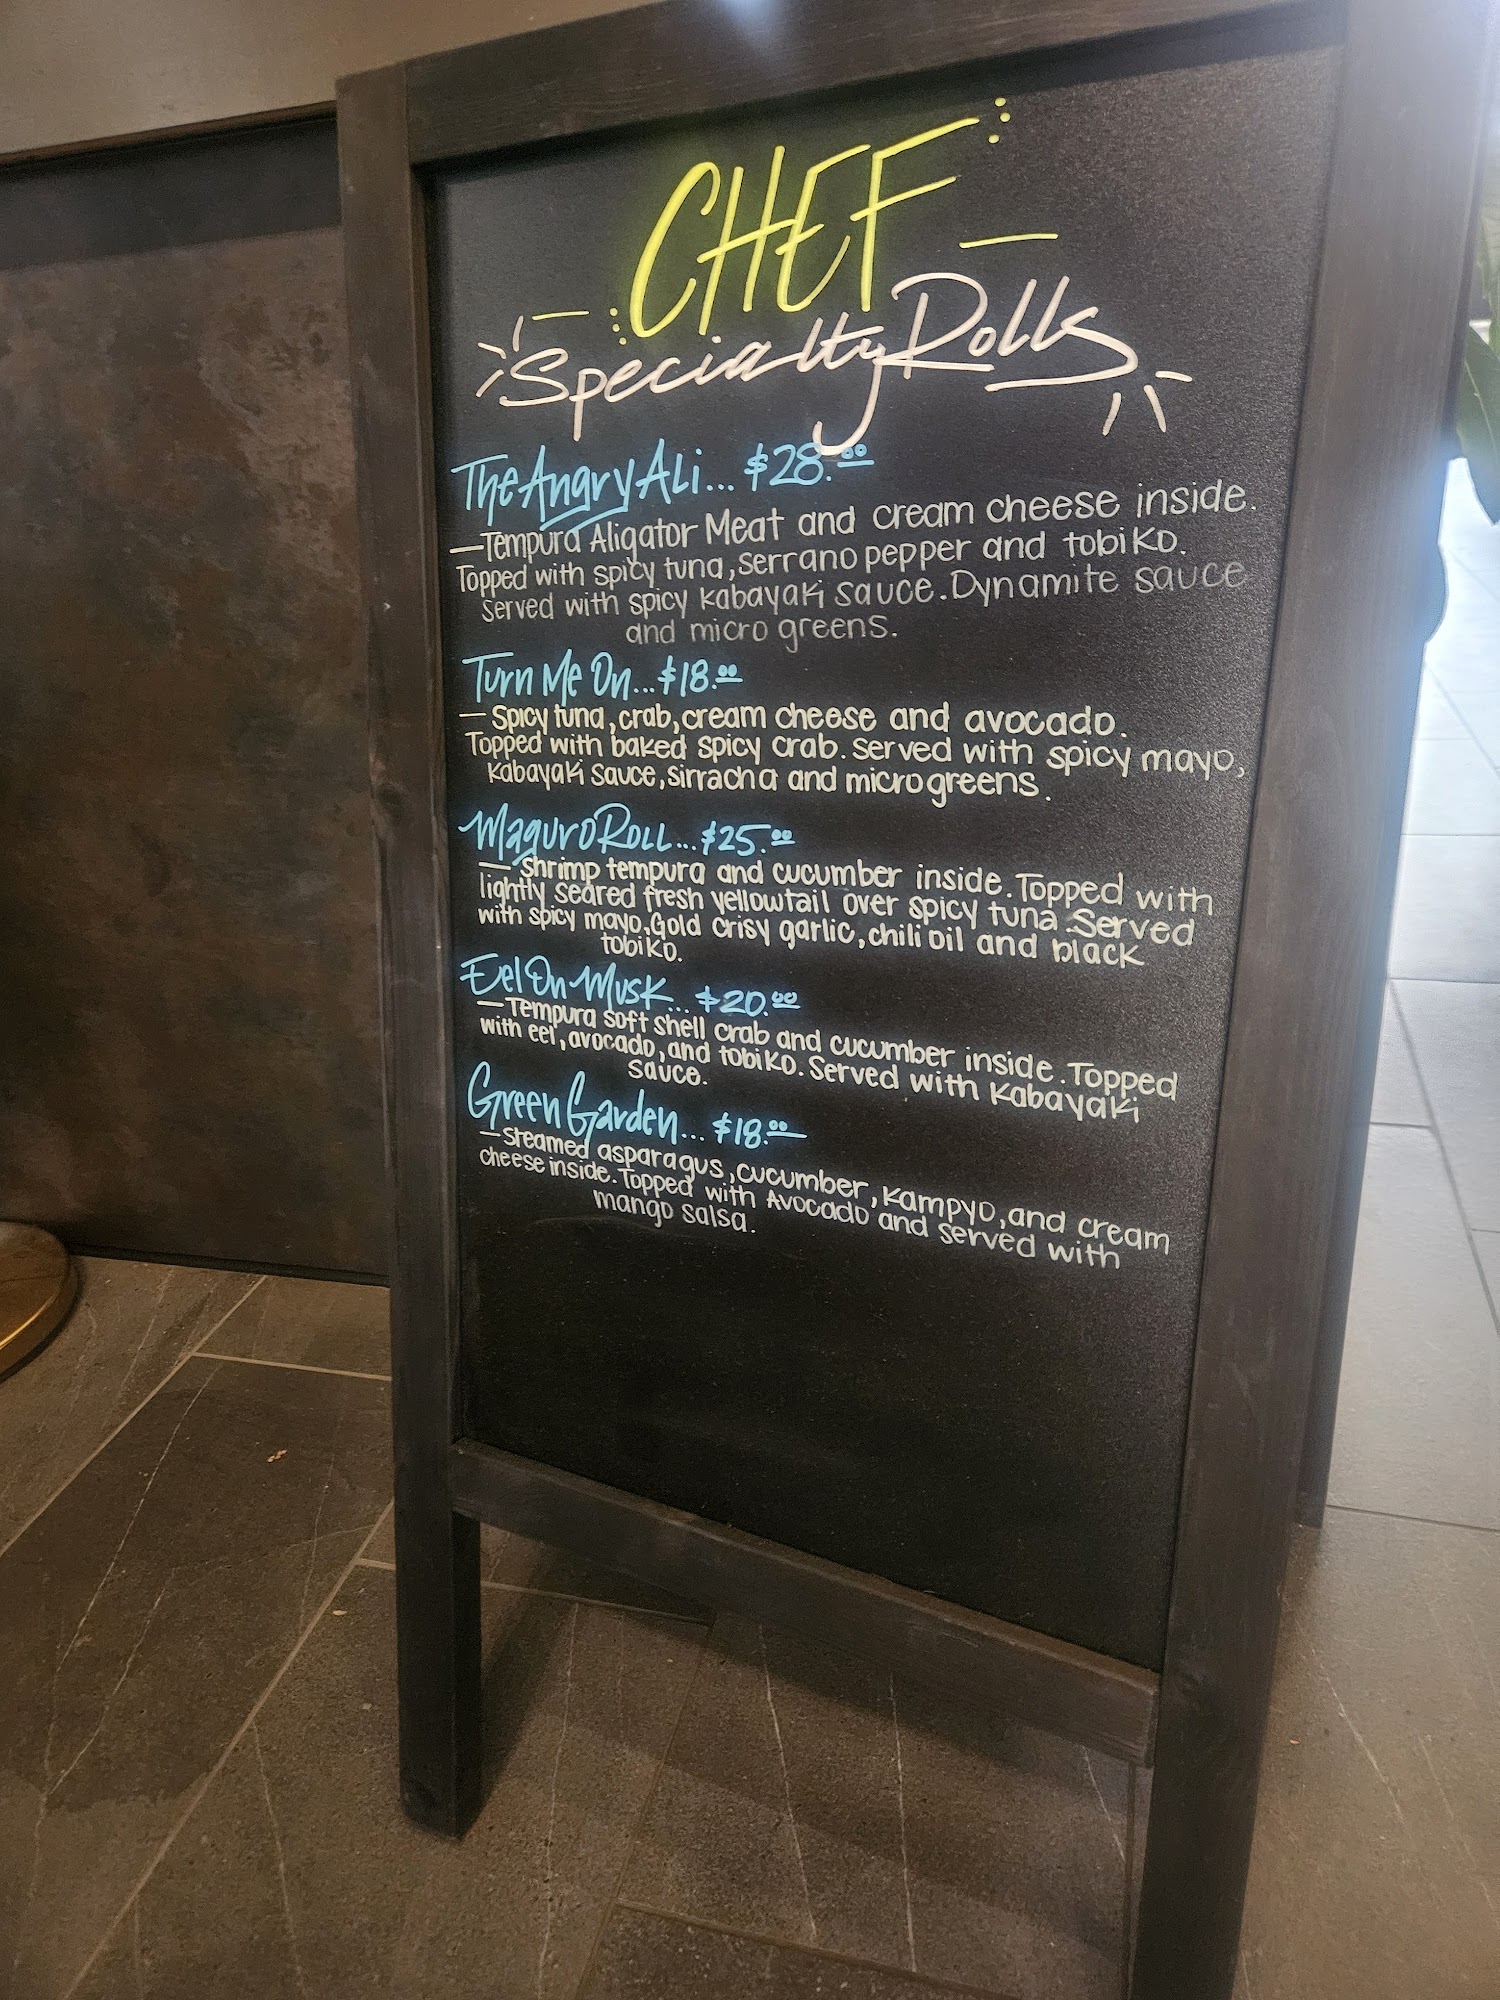 CHEF
Specialty Rolls
The Angry Ali... $28.00
—Tempura Aligator Meat and cream cheese inside.
Topped with spicy tuna, serrano pepper and tobiko.
served with spicy kabayaki sauce. Dynamite sauce
and micro greens.
Turn Me On... $18.00
— Spicy tuna, crab, cream cheese and avocado.
Topped with baked spicy crab. served with spicy mayo,
kabayaki sauce, sirracha and microgreens.
Maguro Roll... $25.00
— shrimp tempura and cucumber inside. Topped with
lightly seared fresh yellowtail over spicy tuna. Served
with spicy mayo, Gold crisy garlic, chili oil and black
tobiko.
Eel On Musk... $20.00
—Tempura soft shell crab and cucumber inside. Topped
with eel, avocado, and tobiko. Served with kabayaki
sauce.
Green Garden... $18.00
—steamed asparagus, cucumber, kampyo, and cream
cheese inside. Topped with Avocado and served with
mango salsa.